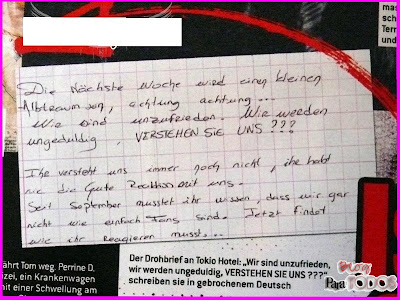 mas
sch
Terr
und
Die Nächste Woche wird einen kleinen
Albtraum sein, achtung achtung...
Wie sind unzufrieden. Wie werden
ungeduldig, VERSTEHEN SIE UNS ???
Ihr versteht uns immer noch nicht, ihr habt
nie die Gute Reaktion mit uns.
Seit September musstet ihr wissen, dass wir gar
nicht wie einfach Fans sind. Jetzt findet
wie ihr Reagieren musst...
ährt Tom weg. Perrine D.
izei, ein Krankenwagen
mit einer Schwellung am
Der Drohbrief an Tokio Hotel: „Wir sind unzufrieden,
wir werden ungeduldig, VERSTEHEN SIE UNS ???"
schreiben sie in gebrochenem Deutsch
Blog
Para
TODOS